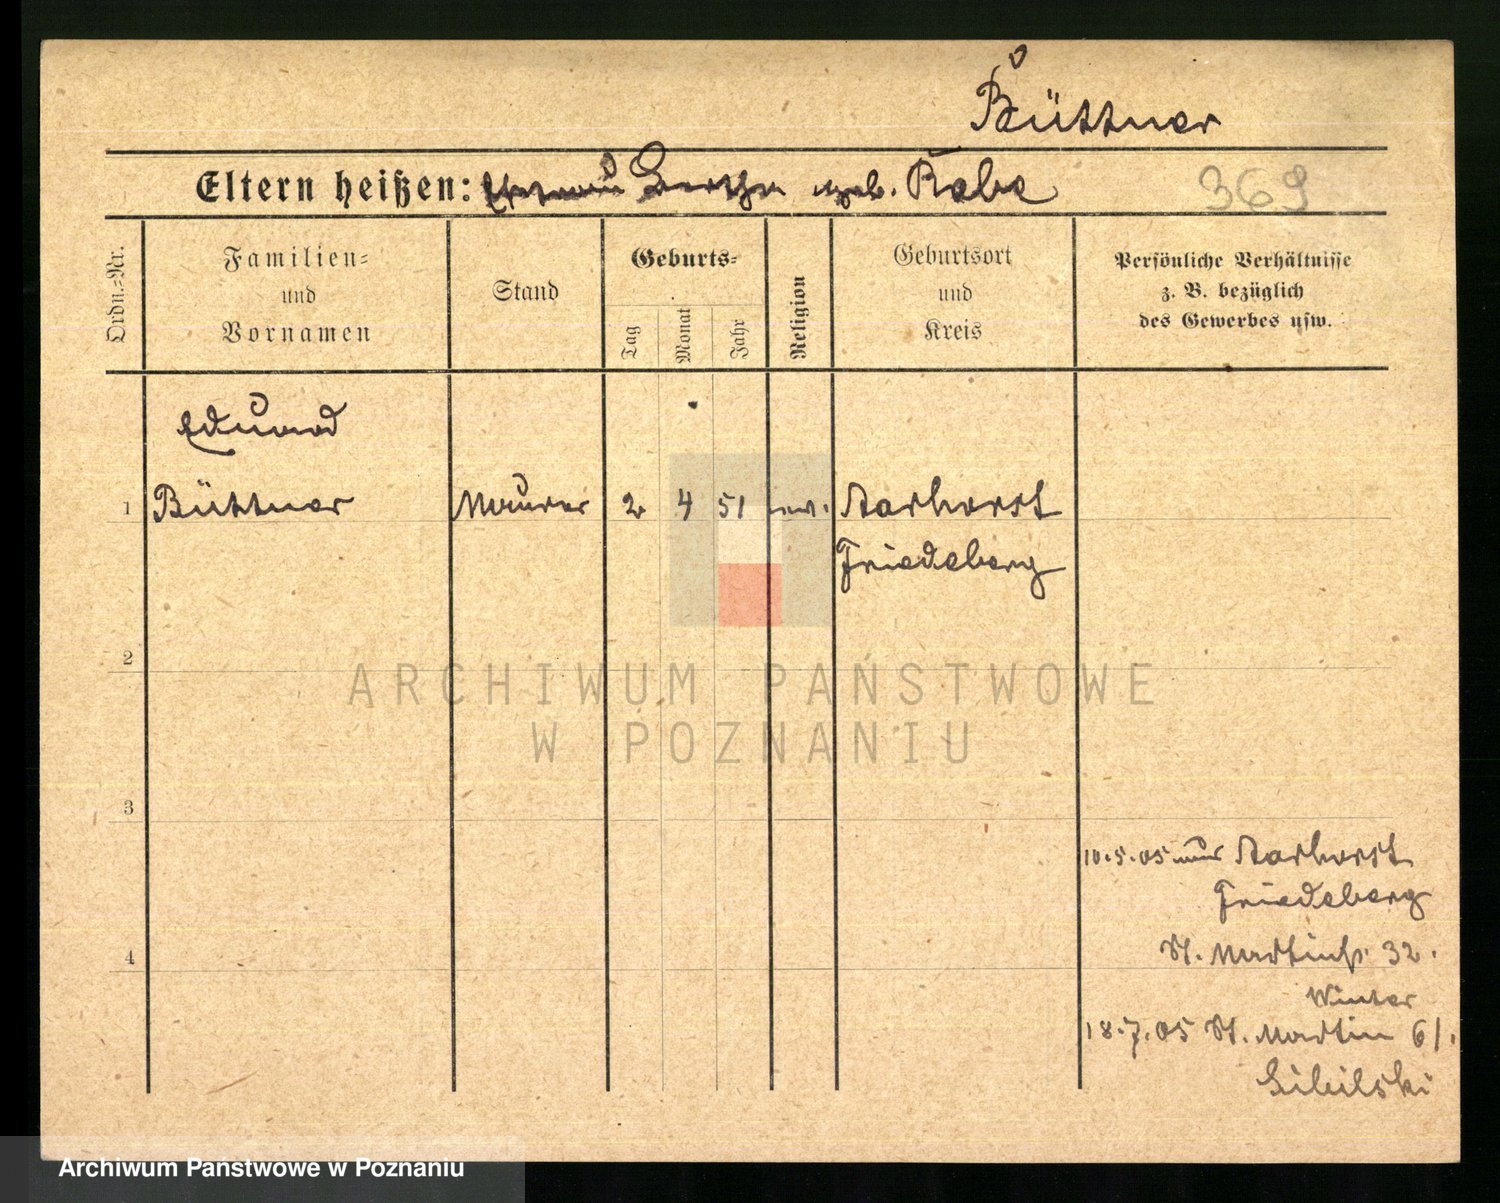 Büttner
Eltern heißen: Bertha geb. Rabe
369
Ordn.-Nr.
Familien-
und
Vornamen
Stand
Geburts-
Tag
Monat
Jahr
Religion
Geburtsort
und
Kreis
Persönliche Verhältnisse
z. B. bezüglich
des Gewerbes usw.
Eduard
1 Büttner Maurer 2 4 51 ev. Aarhorst
Friedeberg
2
ARCHIWUM PAŃSTWOWE
W POZNANIU
3
10.5.05 aus Aarhorst
Friedeberg
St. Martinstr. 32.
4
Winter
18.7.05 St. Martin 61.
Archiwum Państwowe w Poznaniu